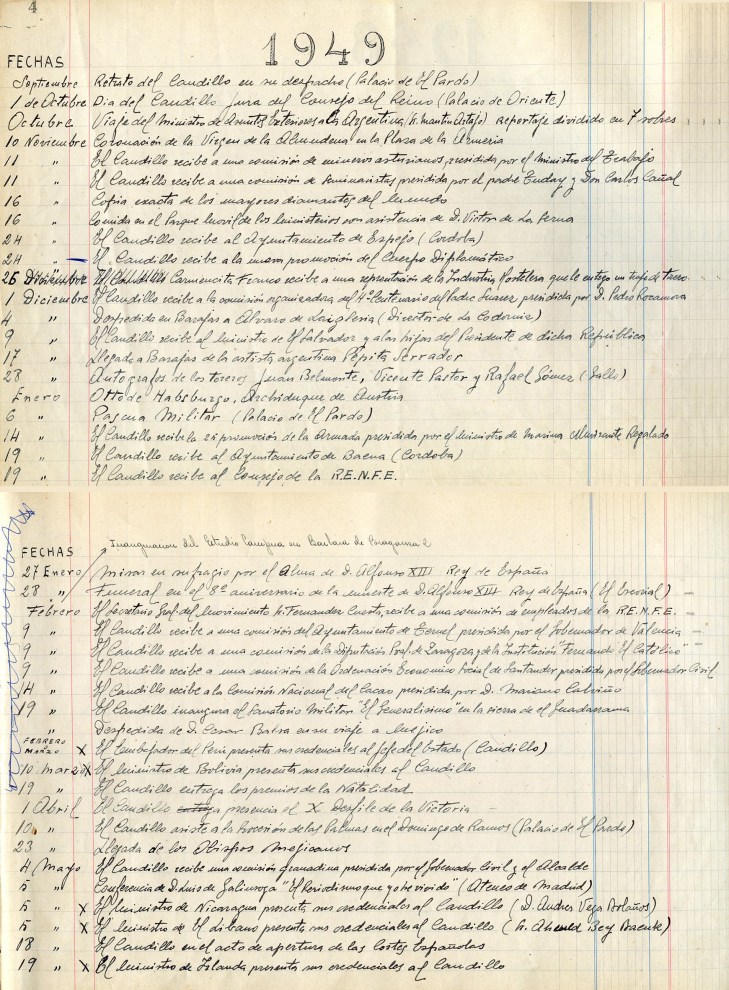 4
1949
FECHAS
Septiembre Retrato del Caudillo en su despacho (Palacio de El Pardo)
1 de Octubre Dia del Caudillo Jura del Consejo del Reino (Palacio de Oriente)
Octubre Viaje del Ministro de Asuntos Exteriores a la Argentina (Sr. Martin Artajo) Reportaje dividido en 7 sobres
10 Noviembre Coronación de la Virgen de la Almudena en la Plaza de la Armeria
11 " El Caudillo recibe a una comisión de mineros asturianos, presidida por el Ministro del Trabajo
11 " El Caudillo recibe a una comisión de Seminaristas presidida por el padre y Don Carlos Cañal
16 " Copia exacta de los mayores diamantes del mundo
16 " Comida en el Parque Movil de los Ministerios con asistencia de D. Victor de La Serna
24 " El Caudillo recibe al Ayuntamiento de Espejo (Cordoba)
24 " El Caudillo recibe a la nueva promoción del Cuerpo Diplomático
26 Carmencita Franco recibe a una representación de la Industria Hostelera que le entrega un traje de torero
1 Diciembre El Caudillo recibe a la comisión organizadora del 4º Centenario del Padre Suarez presidida por D. Pedro Rocamora
4 " Despedida en Barajas a Alvaro de Laiglesia (Director de La Codorniz)
9 " El Caudillo recibe al Ministro de El Salvador y a las hijas del Presidente de dicha República
17 " Llegada a Barajas de la artista argentina Pepita Serrador
28 " Autografos de los toreros Juan Belmonte, Vicente Pastor y Rafael Gómez (Gallo)
Enero Otto de Habsburgo, Archiduque de Austria
6 " Pascua Militar (Palacio de El Pardo)
14 " El Caudillo recibe la 2ª promoción de la Armada presidida por el Ministro de Marina Almirante Regalado
19 " El Caudillo recibe al Ayuntamiento de Baena (Cordoba)
19 " El Caudillo recibe al Consejo de la R.E.N.F.E.
Inauguracion del Estudio Campua en Barbara de Braganza 2
FECHAS
27 Enero Misas en sufragio por el Alma de D. Alfonso XIII Rey de España
28 " Funeral en el 8º aniversario de la muerte de D. Alfonso XIII Rey de España (El Escorial)
Febrero El Secretario Gral. del Movimiento Sr. Fernandez Cuesta, recibe a una comisión de empleados de la R.E.N.F.E.
9 " El Caudillo recibe a una comisión del Ayuntamiento de Teruel presidida por el Gobernador de Valencia
9 " El Caudillo recibe a una comisión de la Diputación Prov. de Zaragoza, y de la Institución "Fernando El Católico"
9 " El Caudillo recibe a una comisión de la Ordenación Economico Social de Santander presidida por el Gobernador Civil
14 " El Caudillo recibe a la Comisión Nacional del Cacao presidida por D. Mariano Calviño
19 " El Caudillo inaugura el Sanatorio Militar "El Generalisimo" en la sierra de el Guadarrama
" Despedida de D. Cesar Balsa en su viaje a Mejico
FEBRERO
MARZO X El Embajador del Perú presenta sus credenciales al Jefe del Estado (Caudillo)
10 Marzo X El Ministro de Bolivia presenta sus credenciales al Caudillo
19 " El Caudillo entrega los premios de la Natalidad
1 Abril El Caudillo presencia el X Desfile de la Victoria
10 " El Caudillo asiste a la Procesión de las Palmas en el Domingo de Ramos (Palacio de El Pardo)
23 " Llegada de los Obispos mejicanos
4 Mayo El Caudillo recibe una comisión granadina presidida por el Gobernador Civil y el Alcalde
5 " Conferencia de D. Luis de Galinsoga "El Periodismo que yo he vivido" (Ateneo de Madrid)
5 " X El Ministro de Nicaragua presenta sus credenciales al Caudillo (D. Andres Vega Bolaños)
5 " X El Ministro de El Libano presenta sus credenciales al Caudillo (Sr. Ahmed Bey)
18 " El Caudillo en el acto de apertura de las Cortes Españolas
19 " X El Ministro de Irlanda presenta sus credenciales al Caudillo